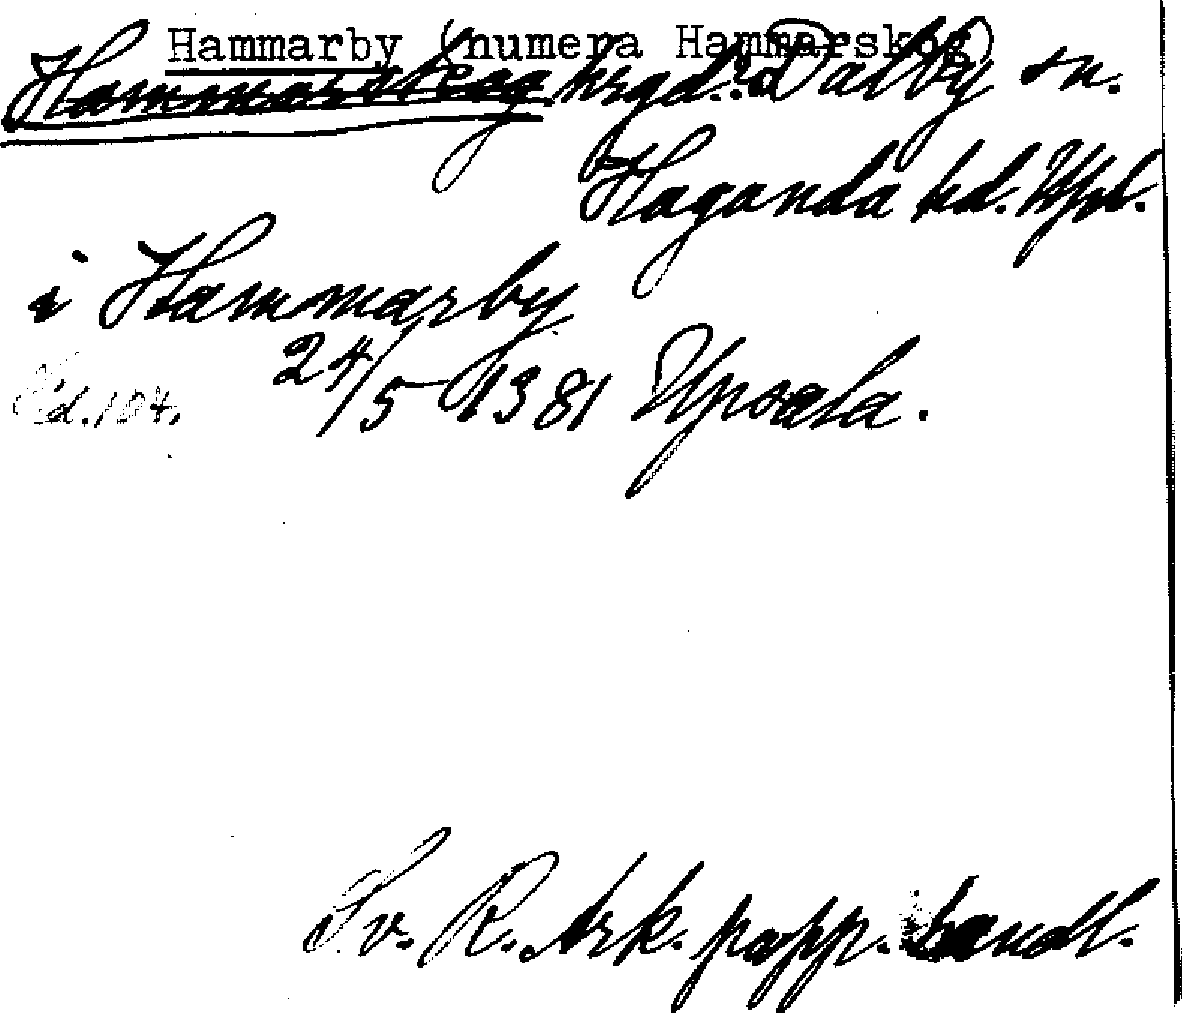 Hammarby (numera Hammarskog)
Hammarskog hrgd. Dalby sn.
Hagunda hd. Upl.
i Hammarby
24/5 1381 Upsala.
Sv. R. Ark. papp. handl.